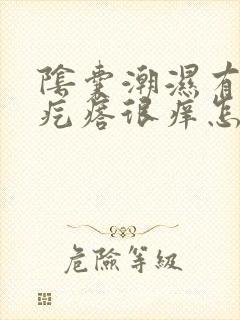 陰囊潮濕有
疙瘩很痒怎
危險等級